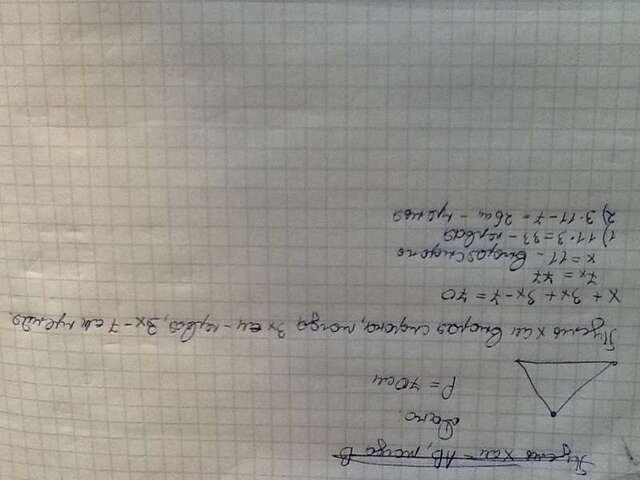 Пусть x см - AB, тогда B
Дано:
P = 70 см
Пусть x см вторая сторона, тогда 3x см - первая, 3x - 7 см третья.
x + 3x + 3x - 7 = 70
7x = 77
x = 11 - вторая сторона
1) 11 · 3 = 33 - первая
2) 3 · 11 - 7 = 26 см - третья